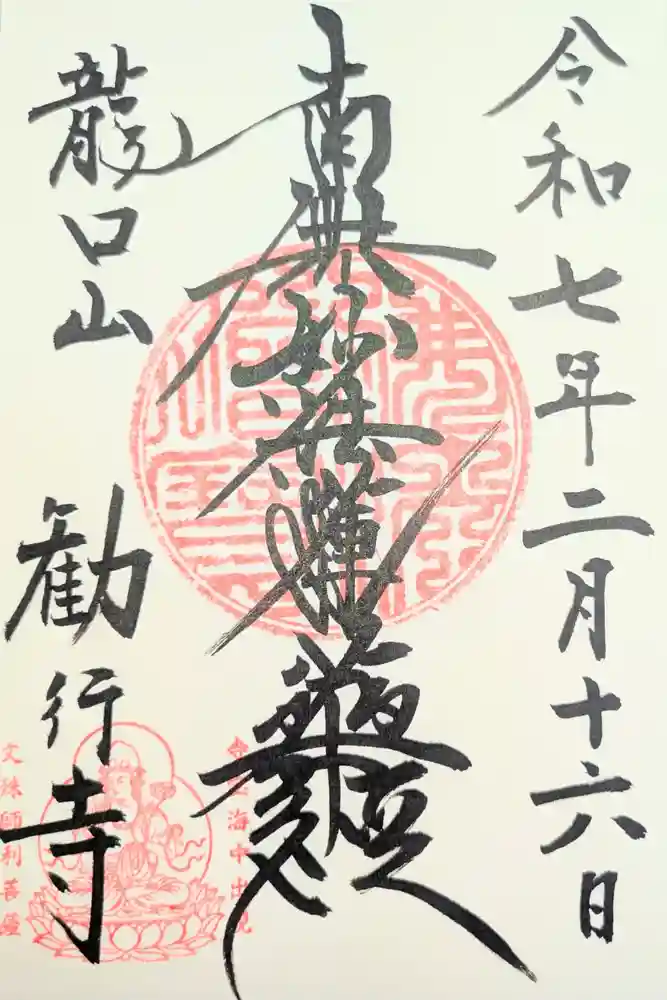 令和七年二月十六日
南無妙法蓮華経
龍口山
勧行寺
文殊師利菩薩
海中出現